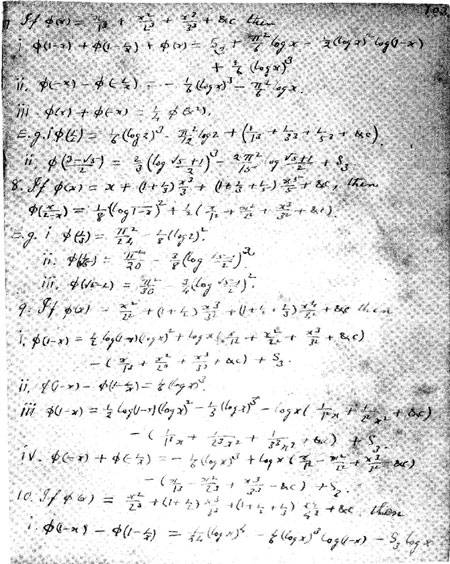 103
7 If φ(x) = x/1³ + x²/2³ + x³/3³ + &c then
i φ(1-x) + φ(1-1/x) + φ(x) = S₃ + π²/6 log x - 1/2 (log x)² log(1-x)
+ 1/6 (log x)³
ii. φ(-x) - φ(-1/x) = - 1/6 (log x)³ - π²/6 log x.
iii φ(x) + φ(-x) = 1/4 φ(x²).
E.g. i φ(1/2) = 1/6 (log 2)³ - π²/12 log 2 + (1/1³ + 1/3³ + 1/5³ + &c)
ii φ((3-√5)/2) = 2/3 (log (√5+1)/2)³ - 2π²/15 log (√5+1)/2 + S₃
8. If φ(x) = x + (1+1/3) x³/3 + (1+1/3+1/5) x⁵/5 + &c, then
φ(x/(2-x)) = 1/8 (log 1-x)² + 1/2 (x/1² + x²/2² + x³/3² + &c).
E.g. i φ(1/3) = π²/24 - 1/8 (log 2)².
ii. = π²/20 - 3/8 (log)²
iii. φ(√5-2) = π²/30 - 3/4 (log)².
9. If φ(x) = x²/2² + (1+1/2) x³/3² + (1+1/2+1/3) x⁴/4² + &c then
i. φ(1-x) = 1/2 log(1-x)(log x)² + log x (x/1² + x²/2² + x³/3² + &c)
- (x/1³ + x²/2³ + x³/3³ + &c) + S₃.
ii. φ(1-x) - φ(1-1/x) = 1/6 (log x)³.
iii φ(1-x) = 1/2 log(1-x)(log x)² - 1/3 (log x)³ - log x (1/1²x + 1/2²x² + &c)
- (1/1³x + 1/2³x² + 1/3³x³ + &c) + S₃
iv. φ(-x) + φ(-1/x) = - 1/6 (log x)³ + log x (x/1² - x²/2² + x³/3² - &c)
- (x/1³ - x²/2³ + x³/3³ - &c) +
10. If φ(x) = x²/2³ + (1+1/2) x³/3³ + (1+1/2+1/3) x⁴/4³ + &c then
i. φ(1-x) - φ(1-1/x) = 1/24 (log x)⁴ - 1/6 (log x)³ log(1-x) - S₃ log x